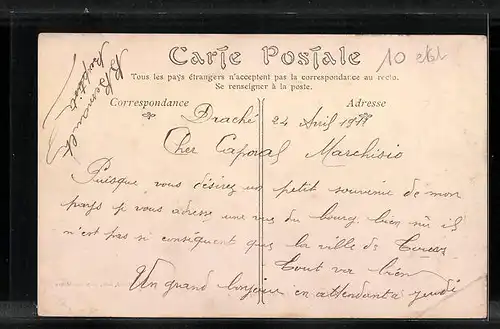 Carte Postale
10
Tous les pays étrangers n'acceptent pas la correspondance au recto.
Se renseigner à la poste.
Correspondance
Adresse
Draché 24 Avril 19
Cher Caporal Marchisio
Puisque vous désirez un petit souvenir de mon
pays je vous adresse une vue du bourg bien sûr il
n'est pas si conséquent que la ville de Tours
Tout va bien
Un grand bonjour en attendant à jeudi